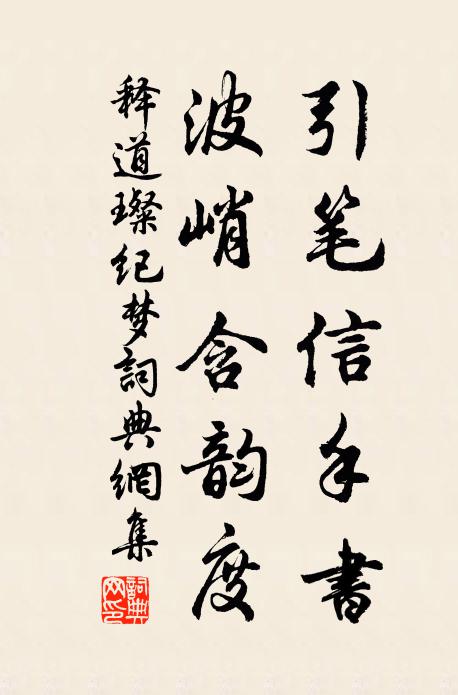 引笔信手书
波峭含韵度
释道璨纪梦詞典網集
詞典网印